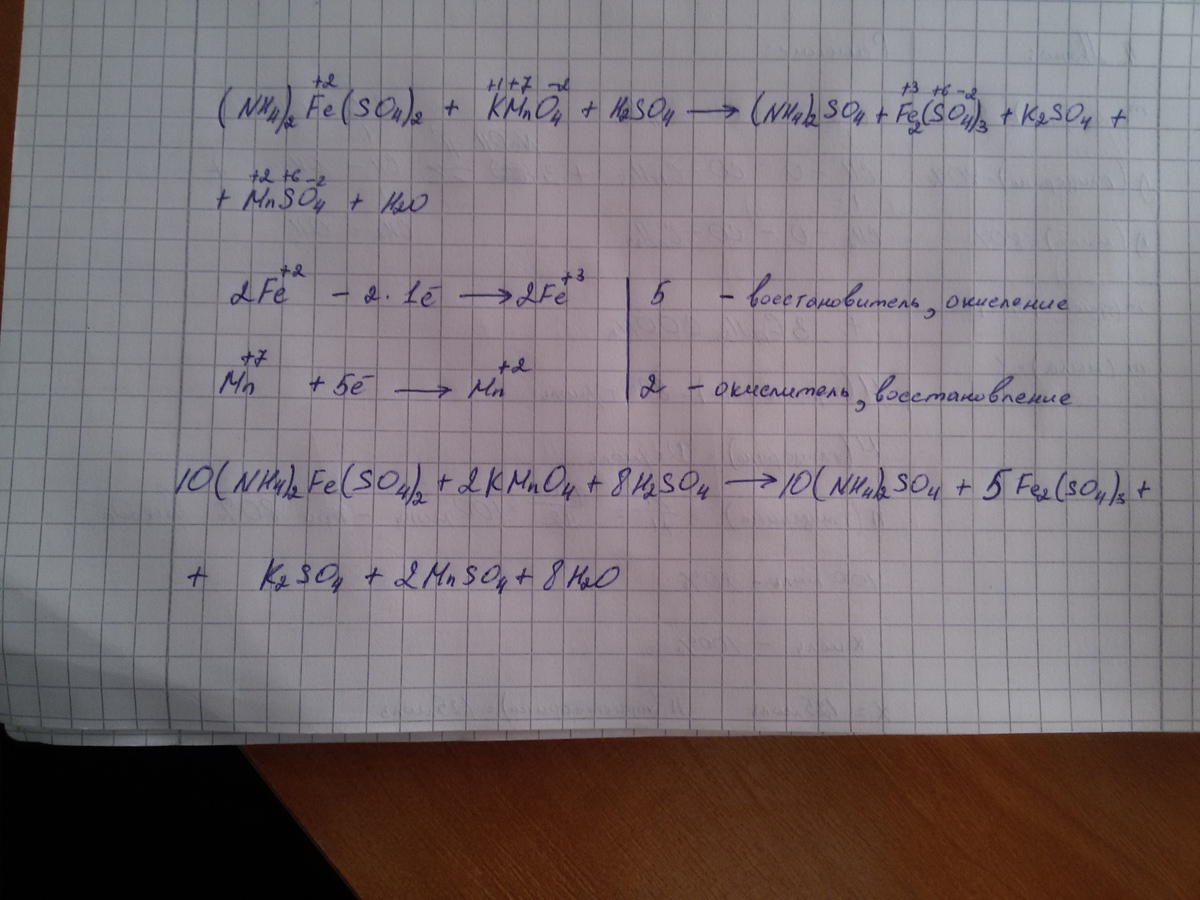 (NH₄)₂Fe⁺²(SO₄)₂ + K⁺¹Mn⁺⁷O₄⁻² + H₂SO₄ ⟶ (NH₄)₂SO₄ + Fe₂⁺³(S⁺⁶O₄⁻²)₃ + K₂SO₄ +
+ Mn⁺²S⁺⁶O₄⁻² + H₂O
2Fe⁺² − 2·1ē ⟶ 2Fe⁺³ | 5 − восстановитель, окисление
Mn⁺⁷ + 5ē ⟶ Mn⁺² | 2 − окислитель, восстановление
10(NH₄)₂Fe(SO₄)₂ + 2KMnO₄ + 8H₂SO₄ ⟶ 10(NH₄)₂SO₄ + 5Fe₂(SO₄)₃ +
+ K₂SO₄ + 2MnSO₄ + 8H₂O